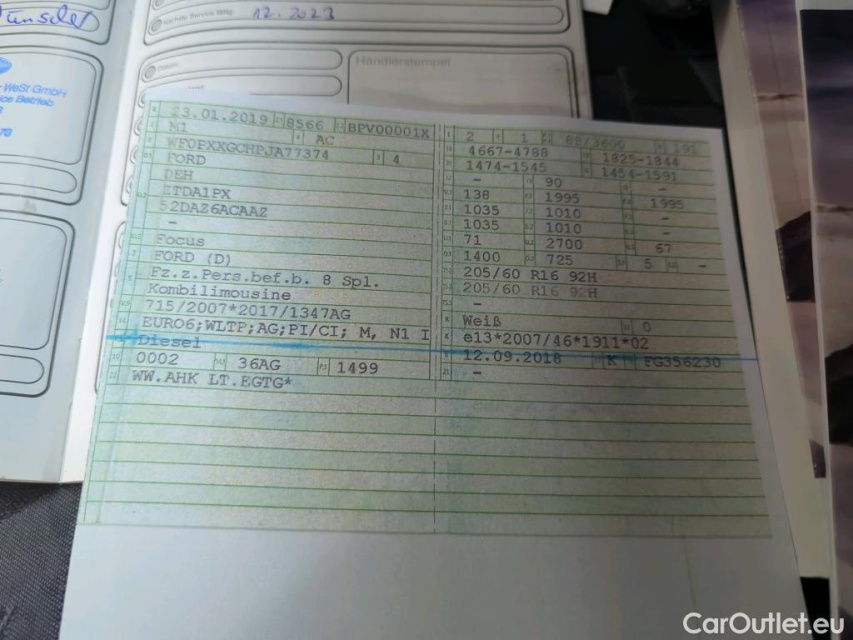 12.2021
Händlerstempel
23.01.2019 8566 BPV00001X
M1 AC
WF0PXXGCHPJA77374 4
FORD
DEH
ZTDA1PX
52DAZ6ACAAZ
-
Focus
FORD (D)
Fz.z.Pers.bef.b. 8 Spl.
Kombilimousine
715/2007*2017/1347AG
EURO6;WLTP;AG;PI/CI; M, N1 I
Diesel
0002 36AG 1499
WW.AHK LT.EGTG*
2 1 88/3600 191
4667-4788 1825-1844
1474-1545 1454-1591
- 90 -
138 1995 1995
1035 1010 -
1035 1010 -
71 2700 67
1400 725 5 -
205/60 R16 92H
205/60 R16 92H
-
Weiß 0
e13*2007/46*1911*02
12.09.2018 K FG356230
-
CarOutlet.eu